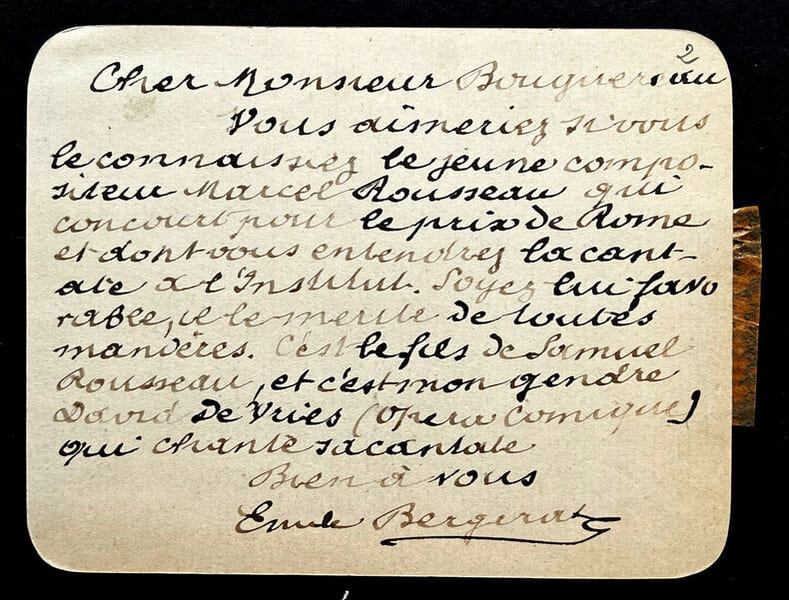 2
Cher Monsieur Bouguereau
Vous aimeriez si vous
le connaissiez le jeune compo-
siteur Marcel Rousseau qui
concourt pour le prix de Rome
et dont vous entendrez la cant-
ate à l'Institut. Soyez lui favo
rable, il le mérite de toutes
manières. C'est le fils de Samuel
Rousseau, et c'est mon gendre
David de Vriès (Opera Comique)
qui chante sa cantate
Bien à vous
Emile Bergerat